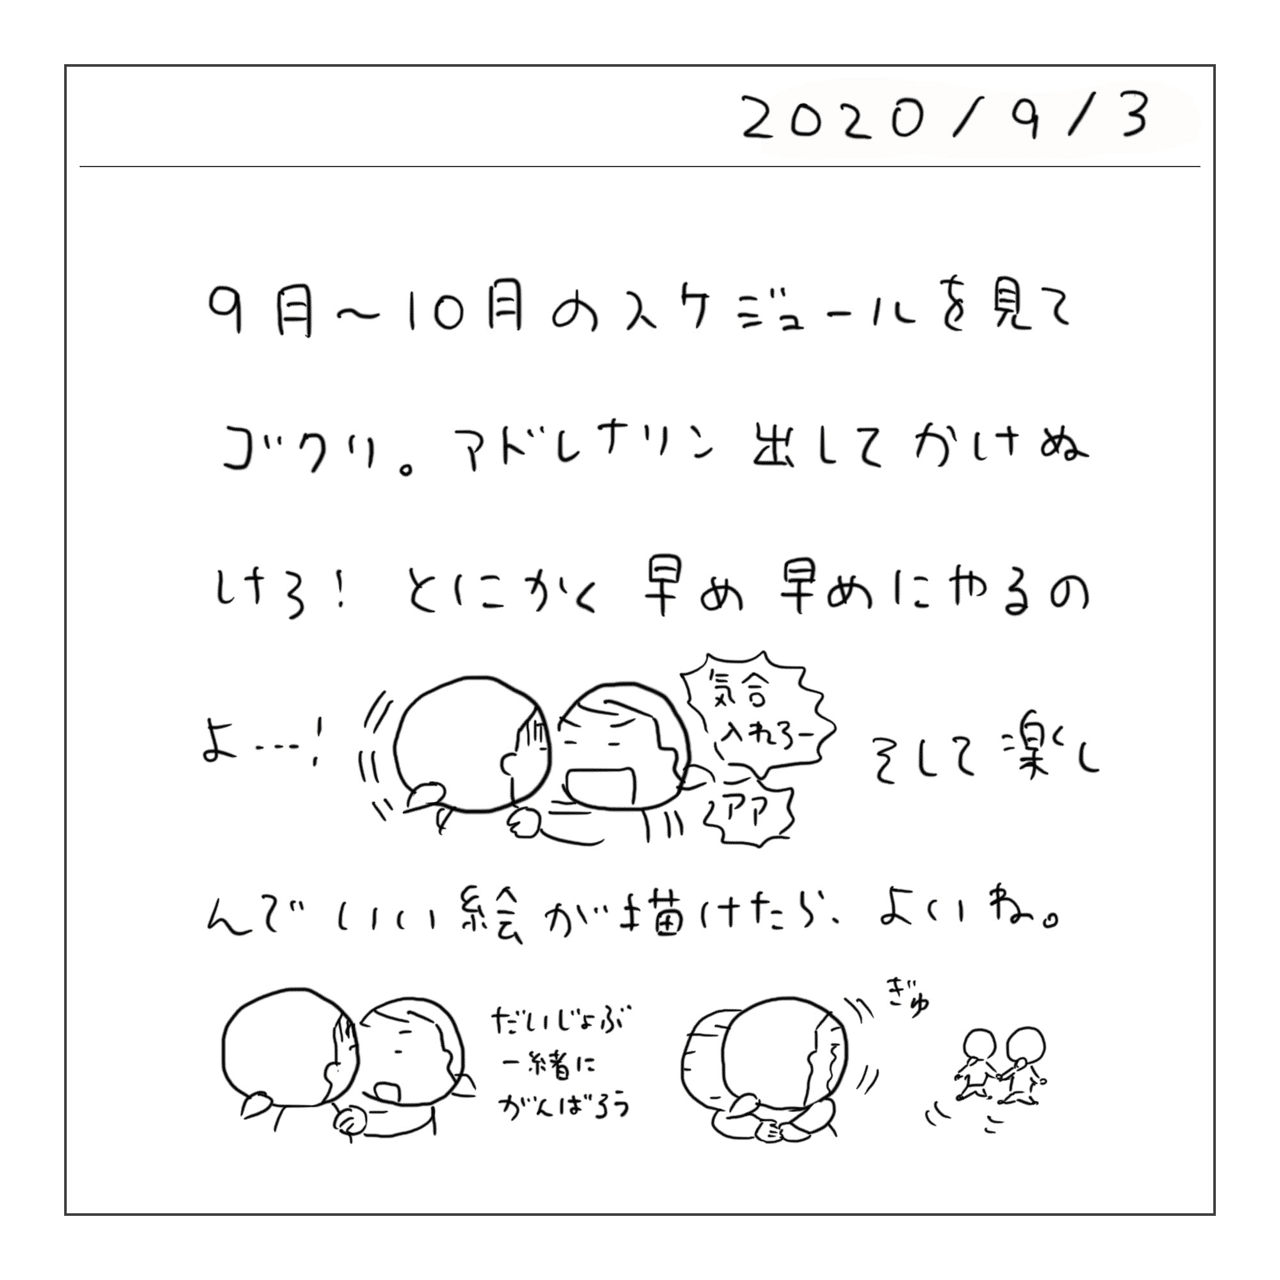 2020/9/3
9月〜10月のスケジュールを見て
ゴクリ。アドレナリン出してかけぬ
けろ！とにかく早め早めにやるの
よ…！
気合
入れろー
アア
そして楽し
んでいい絵が描けたら、よいね。
だいじょぶ
一緒に
がんばろう
ぎゅ